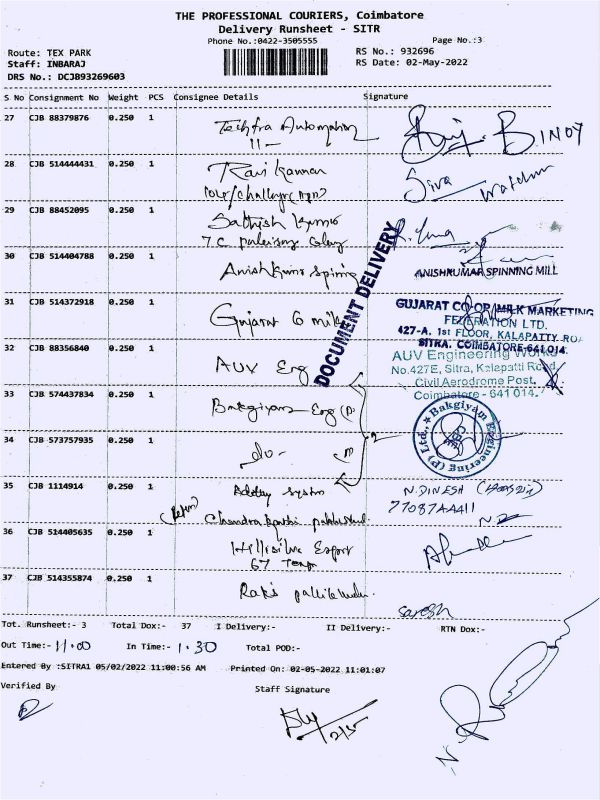 THE PROFESSIONAL COURIERS, Coimbatore
Delivery Runsheet - SITR
Phone No.:0422-3505555
Page No.:3
Route: TEX PARK
RS No.: 932696
Staff: INBARAJ
RS Date: 02-May-2022
DRS No.: DCJB93269603
S No Consignment No Weight PCS Consignee Details Signature
27 CJB 88379876 0.250 1 Techfra Automation
BINOY
28 CJB 514444431 0.250 1 Ravi Kannan
Siva
29 CJB 88452095 0.250 1 Sathish Kumar
30 CJB 514404788 0.250 1 Anishkumar Spinning
ANISHKUMAR SPINNING MILL
DOCUMENT DELIVERY
31 CJB 514372918 0.250 1 Gujarat G milk
GUJARAT CO-OP MILK MARKETING
FEDERATION LTD.
427-A, 1st FLOOR, KALAPATTY ROAD
SITRA, COIMBATORE-641 014.
32 CJB 88356840 0.250 1 AUV Eng
AUV Engineering Works
No.427E, Sitra, Kalapatti Road,
Civil Aerodrome Post,
Coimbatore - 641 014.
33 CJB 574437834 0.250 1 Bakgiyam Eng (P)
Bakgiyam Engineering (P) Ltd.,
34 CJB 573757935 0.250 1 do-
35 CJB 1114914 0.250 1
N. DINESH
77087AA411
36 CJB 514405635 0.250 1
Export
37 CJB 514355874 0.250 1
Suresh
Tot. Runsheet:- 3 Total Dox:- 37 I Delivery:- II Delivery:- RTN Dox:-
Out Time:- 11.00 In Time:- 1.30 Total POD:-
Entered By :SITRA1 05/02/2022 11:00:56 AM Printed On: 02-05-2022 11:01:07
Verified By
Staff Signature